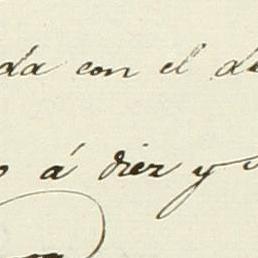 da con el de
o á diez y